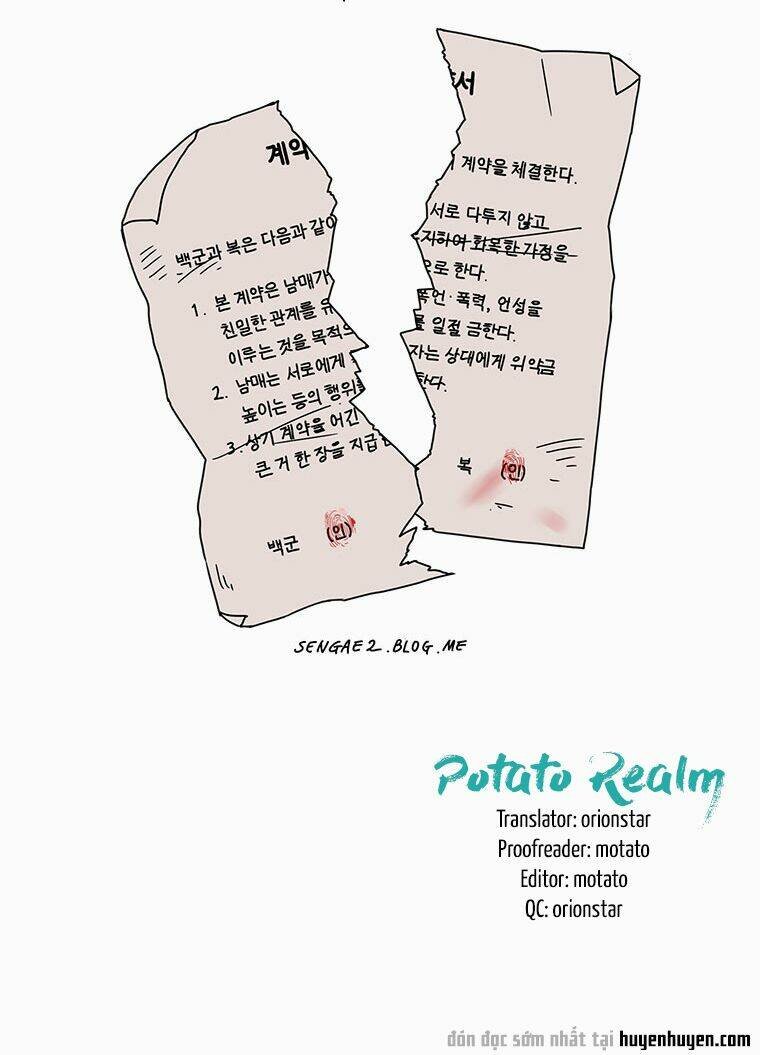 계약
백군과 복은 다음과 같이
1. 본 계약은 남매가
친일한 관계를 유
이루는 것을 목적으
2. 남매는 서로에게
높이는 등의 행위를
3. 상기 계약을 어긴
큰 거 한 장을 지급
백군 (인)
서
계약을 체결한다.
서로 다투지 않고
지하여 화목한 가정을
으로 한다.
폭언·폭력, 언성을
를 일절 금한다.
자는 상대에게 위약금
한다.
복 (인)
SENGAE2.BLOG.ME
Potato Realm
Translator: orionstar
Proofreader: motato
Editor: motato
QC: orionstar
đón đọc sớm nhất tại huyenhuyen.com